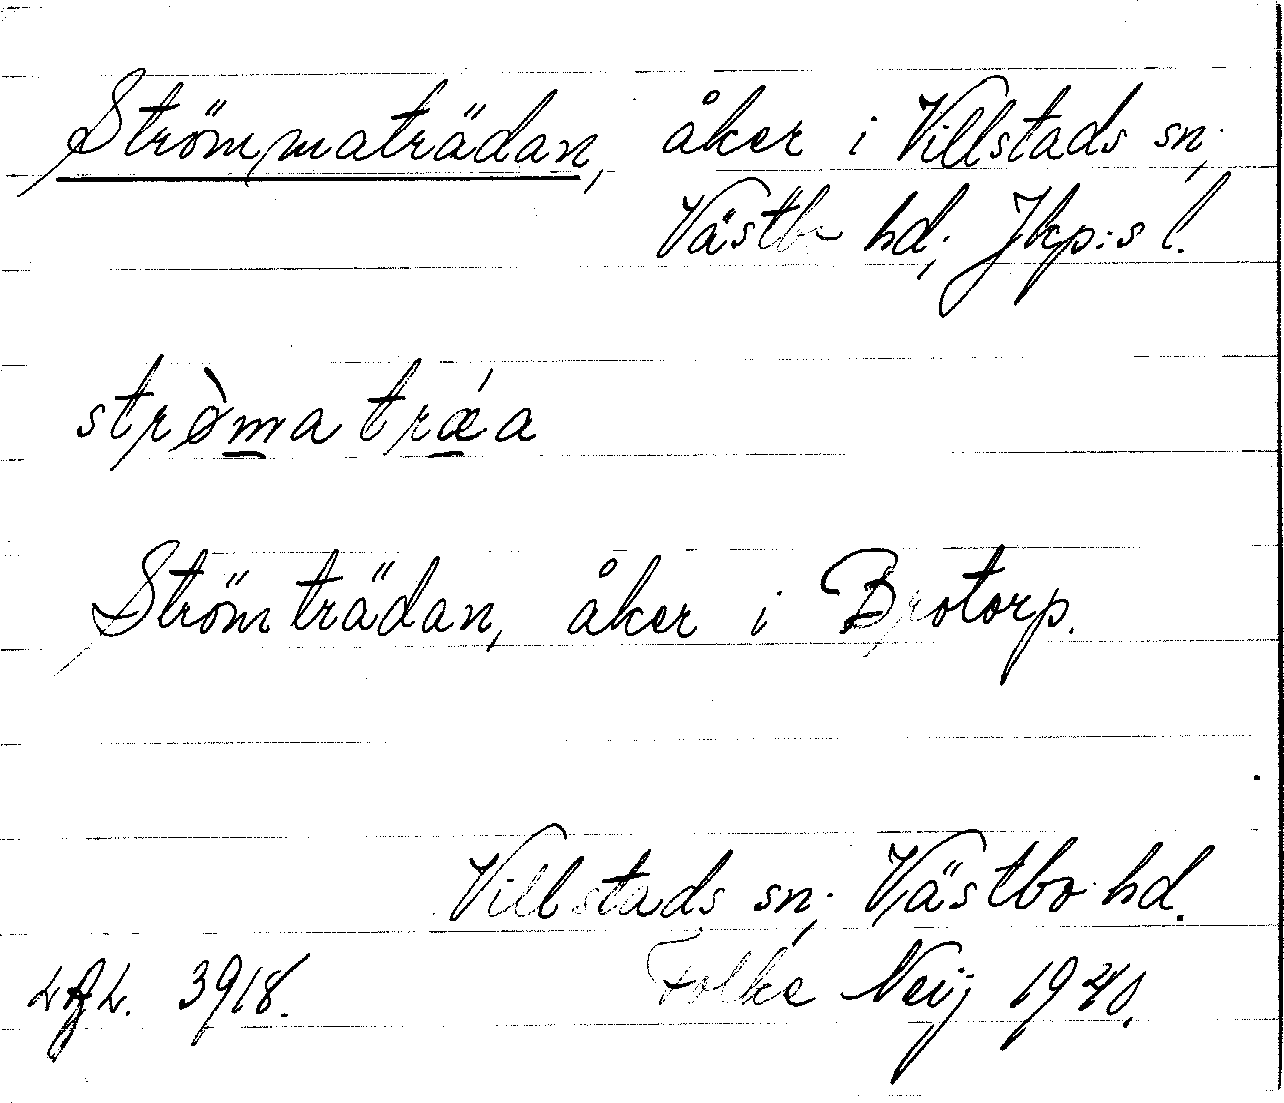 Strömmaträdan, åker i Villstads sn,
Västbo hd, Jkp:s l.
strø̀ma trǽa
Strömträdan, åker i Brotorp.
Villstads sn, Västbo hd.
Folke Neij 1940.
3918.